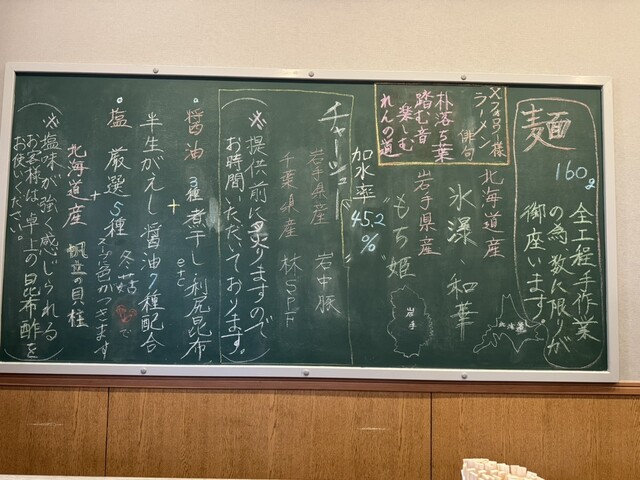 麺
160g
全工程手作業
の為数に限りが
御座います
Xフォロワー様
ラーメン俳句
朴落ち葉
踏む音楽しむ
れんの道
北海道産
氷瀑、和華
岩手県産
"もち姫"
北海道
岩手
加水率
45.2
%
チャーシュー
岩手県産 岩中豚
千葉県産 林SPF
(※提供前に炙りますので
お時間いただいております。)
・醤油 3種煮干し 利尻昆布
etc
+
半生がえし 醤油7種配合
・塩 厳選5種 冬菇
+
北海道産 帆立の貝柱
(※塩味が強く感じられる
お客様は、卓上の昆布酢を
お使いください。)